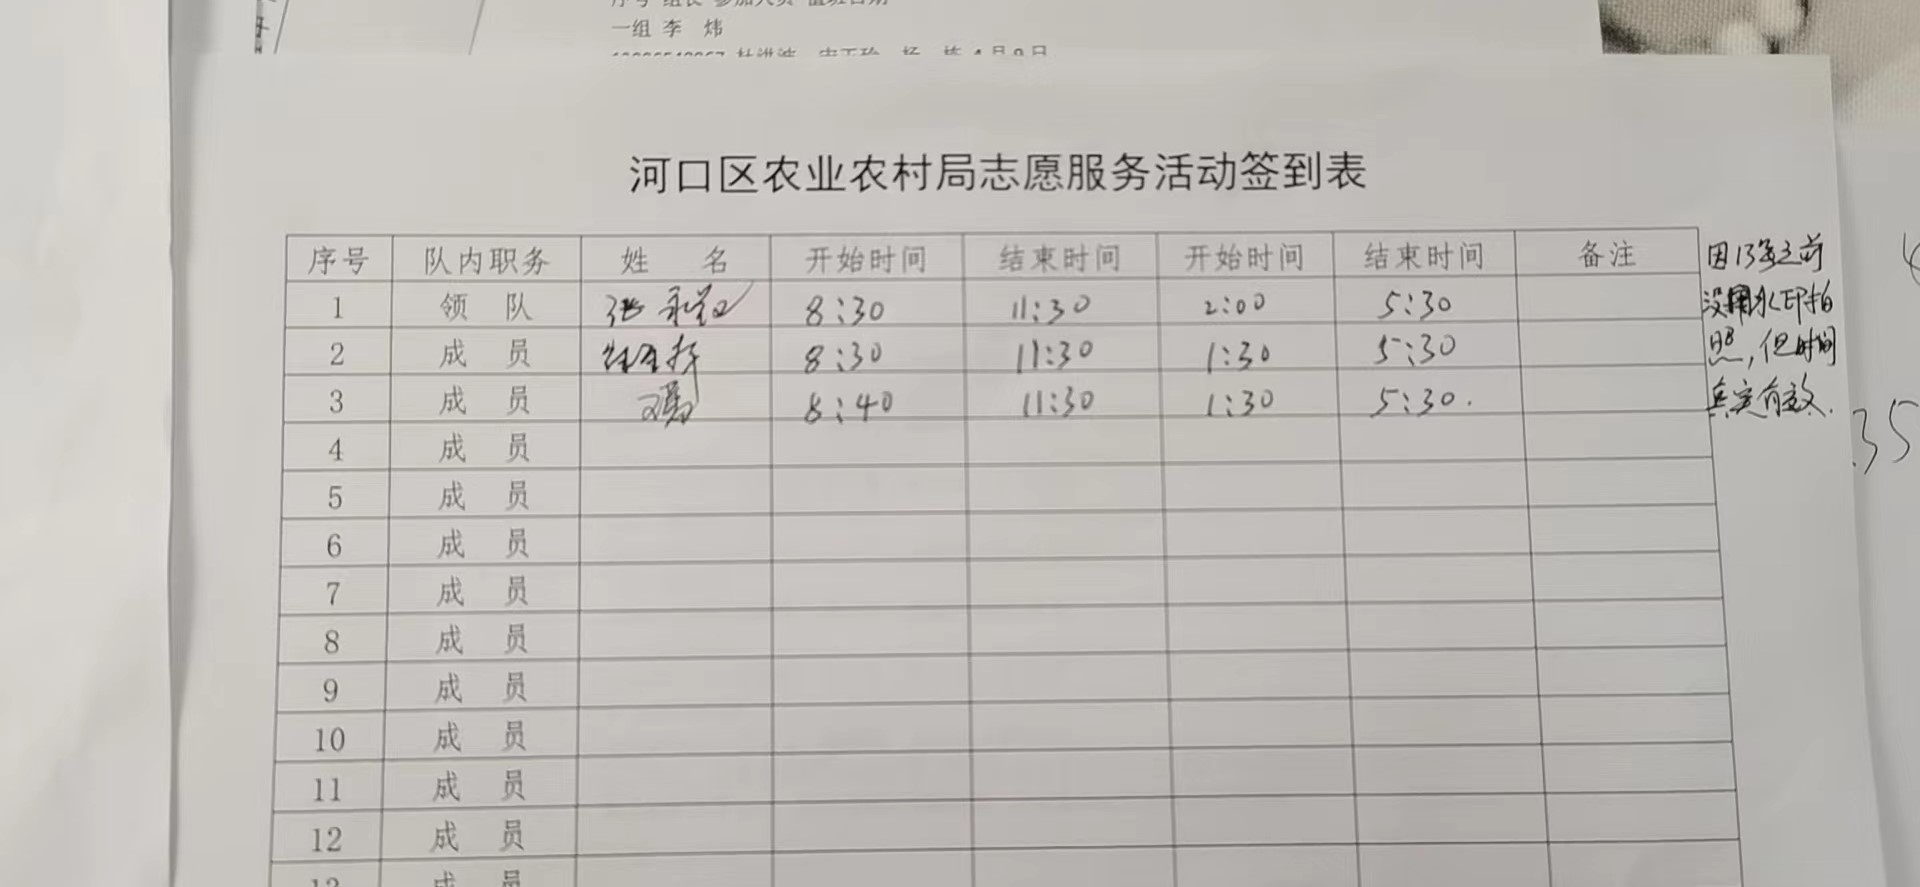 一组 李 炜
河口区农业农村局志愿服务活动签到表
序号 队内职务 姓 名 开始时间 结束时间 开始时间 结束时间 备注
1 领 队 张 8:30 11:30 2:00 5:30
2 成 员 8:30 11:30 1:30 5:30
3 成 员 冯 8:40 11:30 1:30 5:30.
4 成 员
5 成 员
6 成 员
7 成 员
8 成 员
9 成 员
10 成 员
11 成 员
12 成 员
13 成 员
因 之前
没用水印拍
照，但时间
真实有效.
35